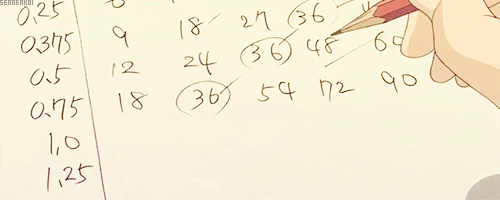 SENNENKOI
0.25
0.375 9 18 27 36
0.5 12 24 36 48 60
0.75 18 36 54 72 90
1.0
1.25